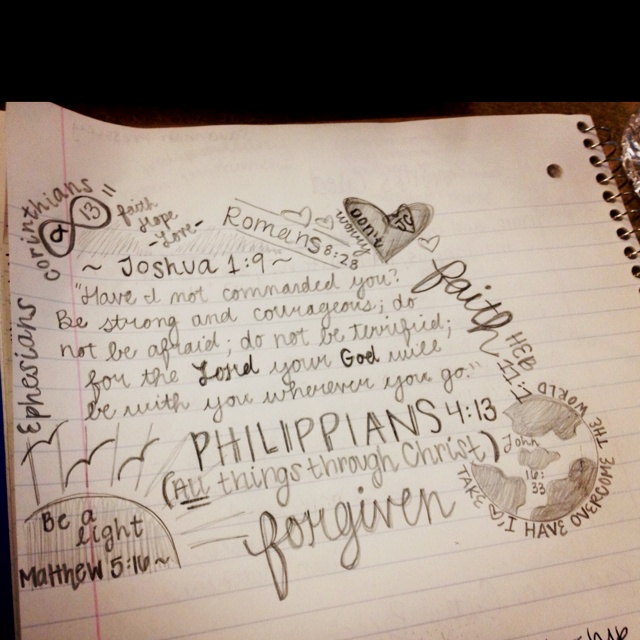 Corinthians
13
faith
Hope
-Love-
Romans
8:28
~ Joshua 1:9 ~
"Have I not commanded you?
Be strong and courageous; do
not be afraid; do not be terrified;
for the Lord your God will
be with you wherever you go."
faith
HEB
11:1
Ephesians
PHILIPPIANS 4:13
(All things through Christ)
forgiven
Be a
light
Matthew 5:16~
John
I HAVE OVERCOME THE WORLD